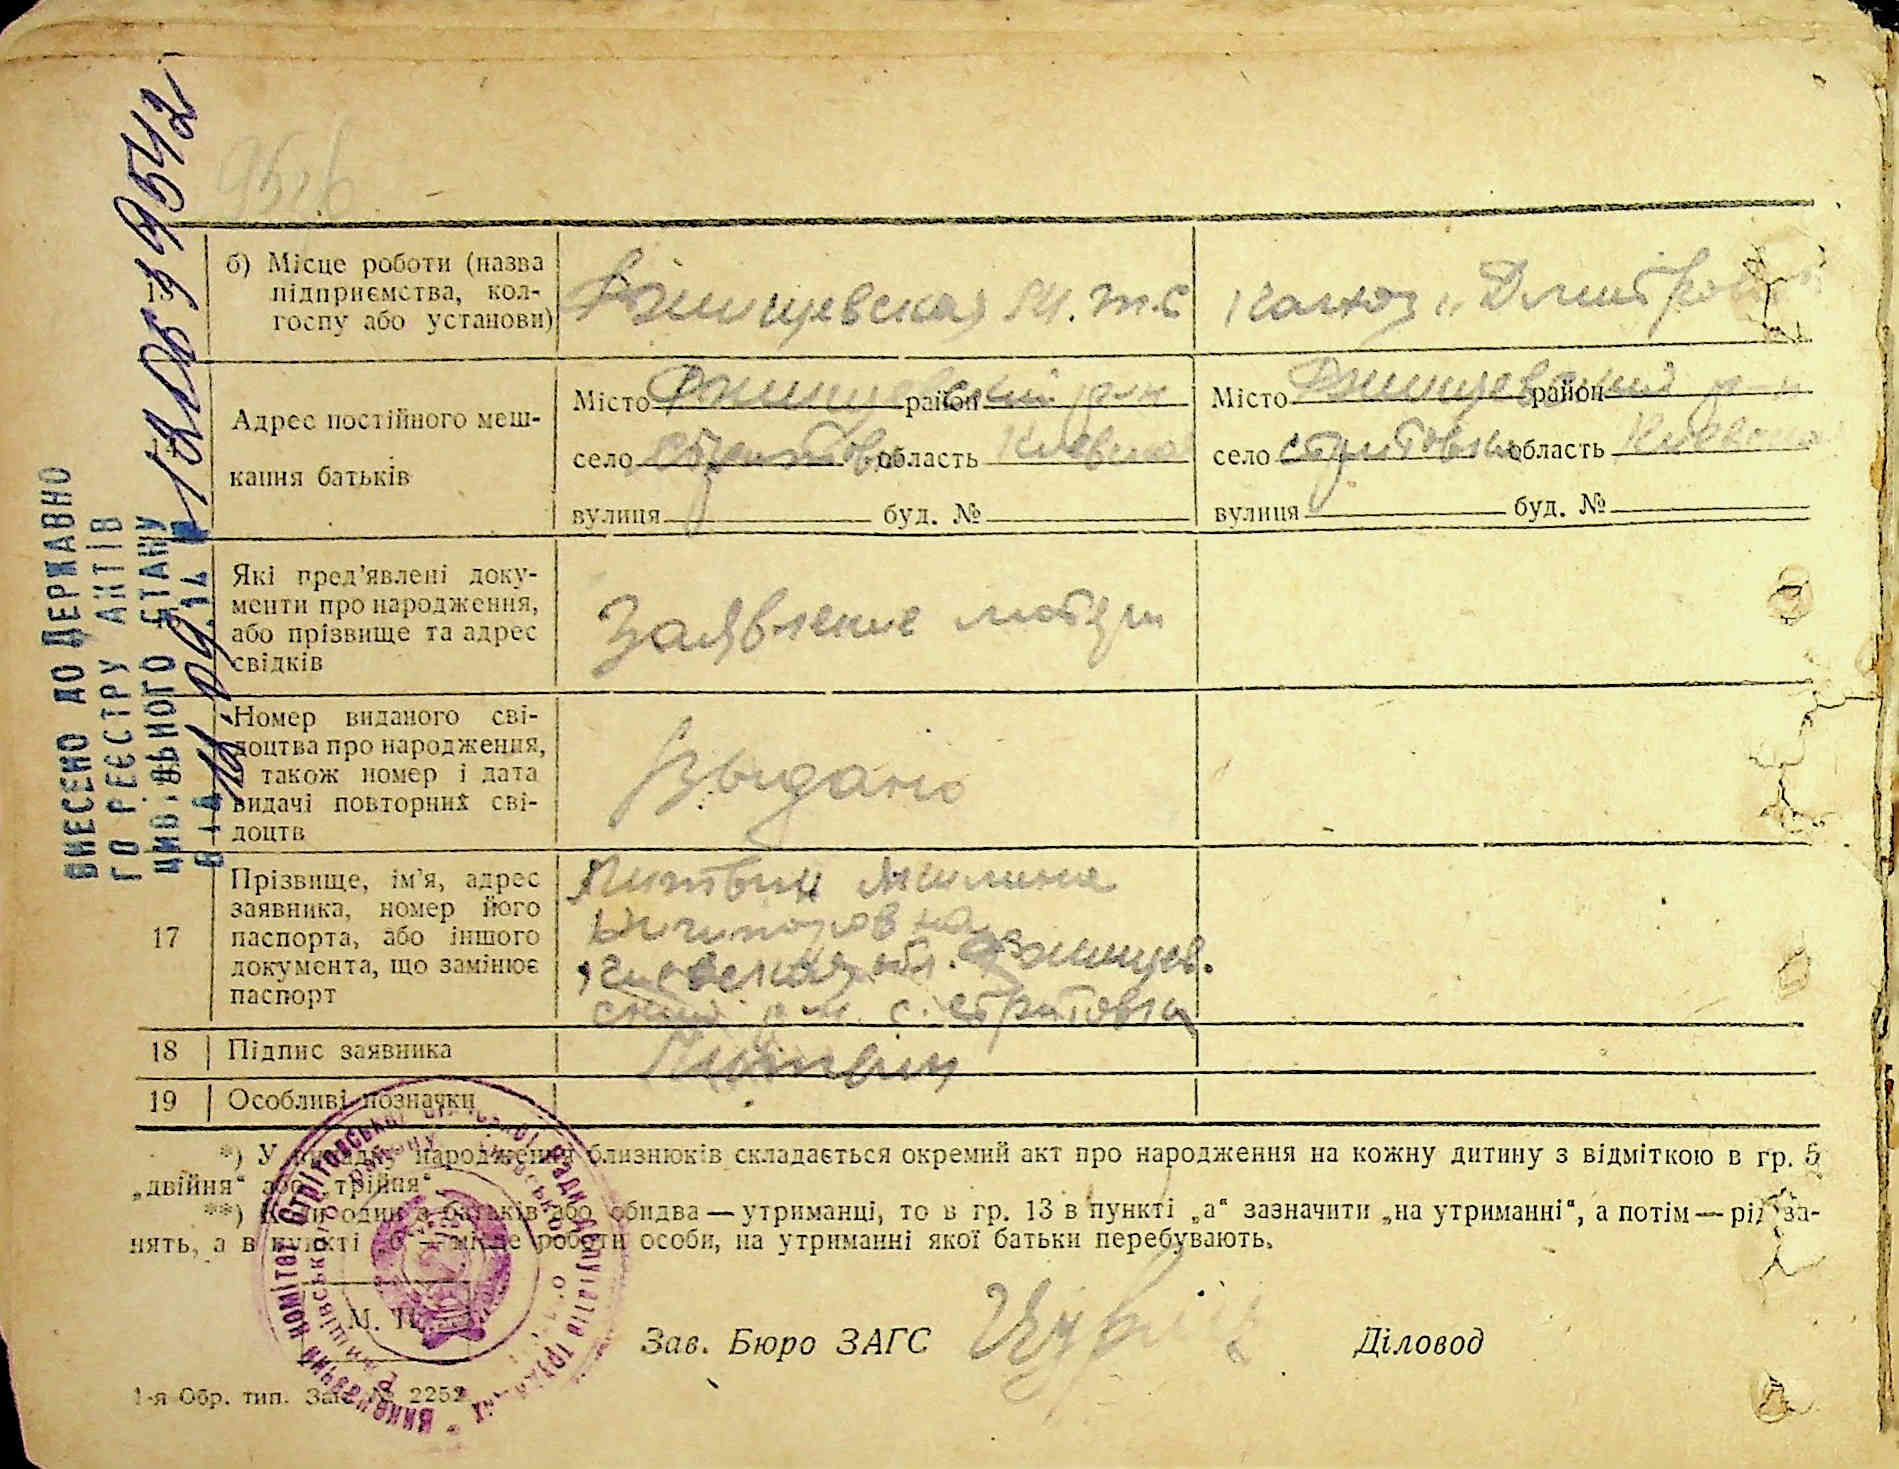 9542
б) Місце роботи (назва
підприємства, кол-
госпу або установи)
Ржищевская М.т.с
колхоз „Димитрова
Адрес постійного меш-
кання батьків
Місто Ржищевский район р-н
село Стритовка область Киевская
вулиця буд. №
Місто Ржищевский район р-н
село Стритовка область Киевская
вулиця буд. №
Які пред’явлені доку-
менти про народження,
або прізвище та адрес
свідків
Заявление матери
Номер виданого сві-
доцтва про народження,
а також номер і дата
видачі повторних сві-
доцтв
Выдано
17
Прізвище, ім’я, адрес
заявника, номер його
паспорта, або іншого
документа, що замінює
паспорт
Литвин
Ничипоровна
Киевская обл. Ржищев.
ский р-н. с. Стритовка
18 Підпис заявника
Литвин
19 Особливі позначки
*) У випадку народження близнюків складається окремий акт про народження на кожну дитину з відміткою в гр. 5
„двійня“ або „трійня“.
**) Коли один з батьків або обидва — утриманці, то в гр. 13 в пункті „а“ зазначити „на утриманні“, а потім — рід за-
нять, а в пункті „б“ — місце роботи особи, на утриманні якої батьки перебувають.
М. П.
Зав. Бюро ЗАГС
Діловод
1-я Обр. тип. Зак. № 2252
ВНЕСЕНО ДО ДЕРЖАВНО
ГО РЕЄСТРУ АКТІВ
ЦИВІЛЬНОГО СТАНУ
ВІД
Виконавчий комітет Стрітовської сільської Ради депутатів трудящих